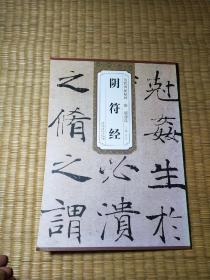 尅姦生於
阴符经
必潰
之脩之謂